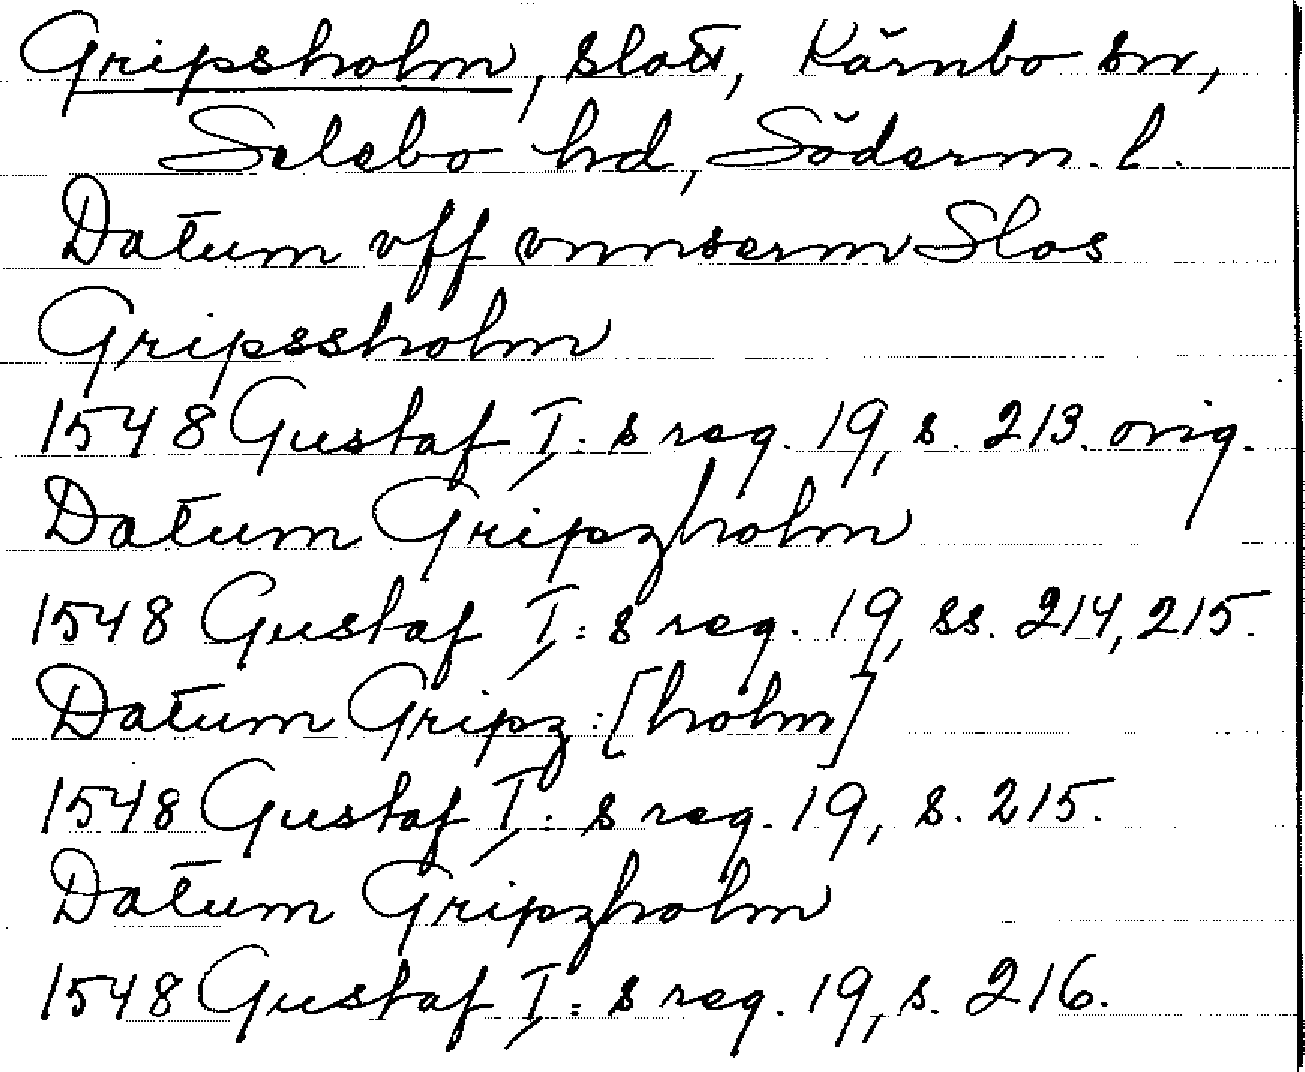 Gripsholm, slott, Kärnbo sn,
Selebo hd, Söderm. l.
Datum vff vnnserm Slos
Gripssholm
1548 Gustaf I:s reg. 19, s. 213. orig.
Datum Gripzholm
1548 Gustaf I:s reg. 19, ss. 214, 215.
Datum Gripz:[holm]
1548 Gustaf I:s reg. 19, s. 215.
Datum Gripzholm
1548 Gustaf I:s reg. 19, s. 216.